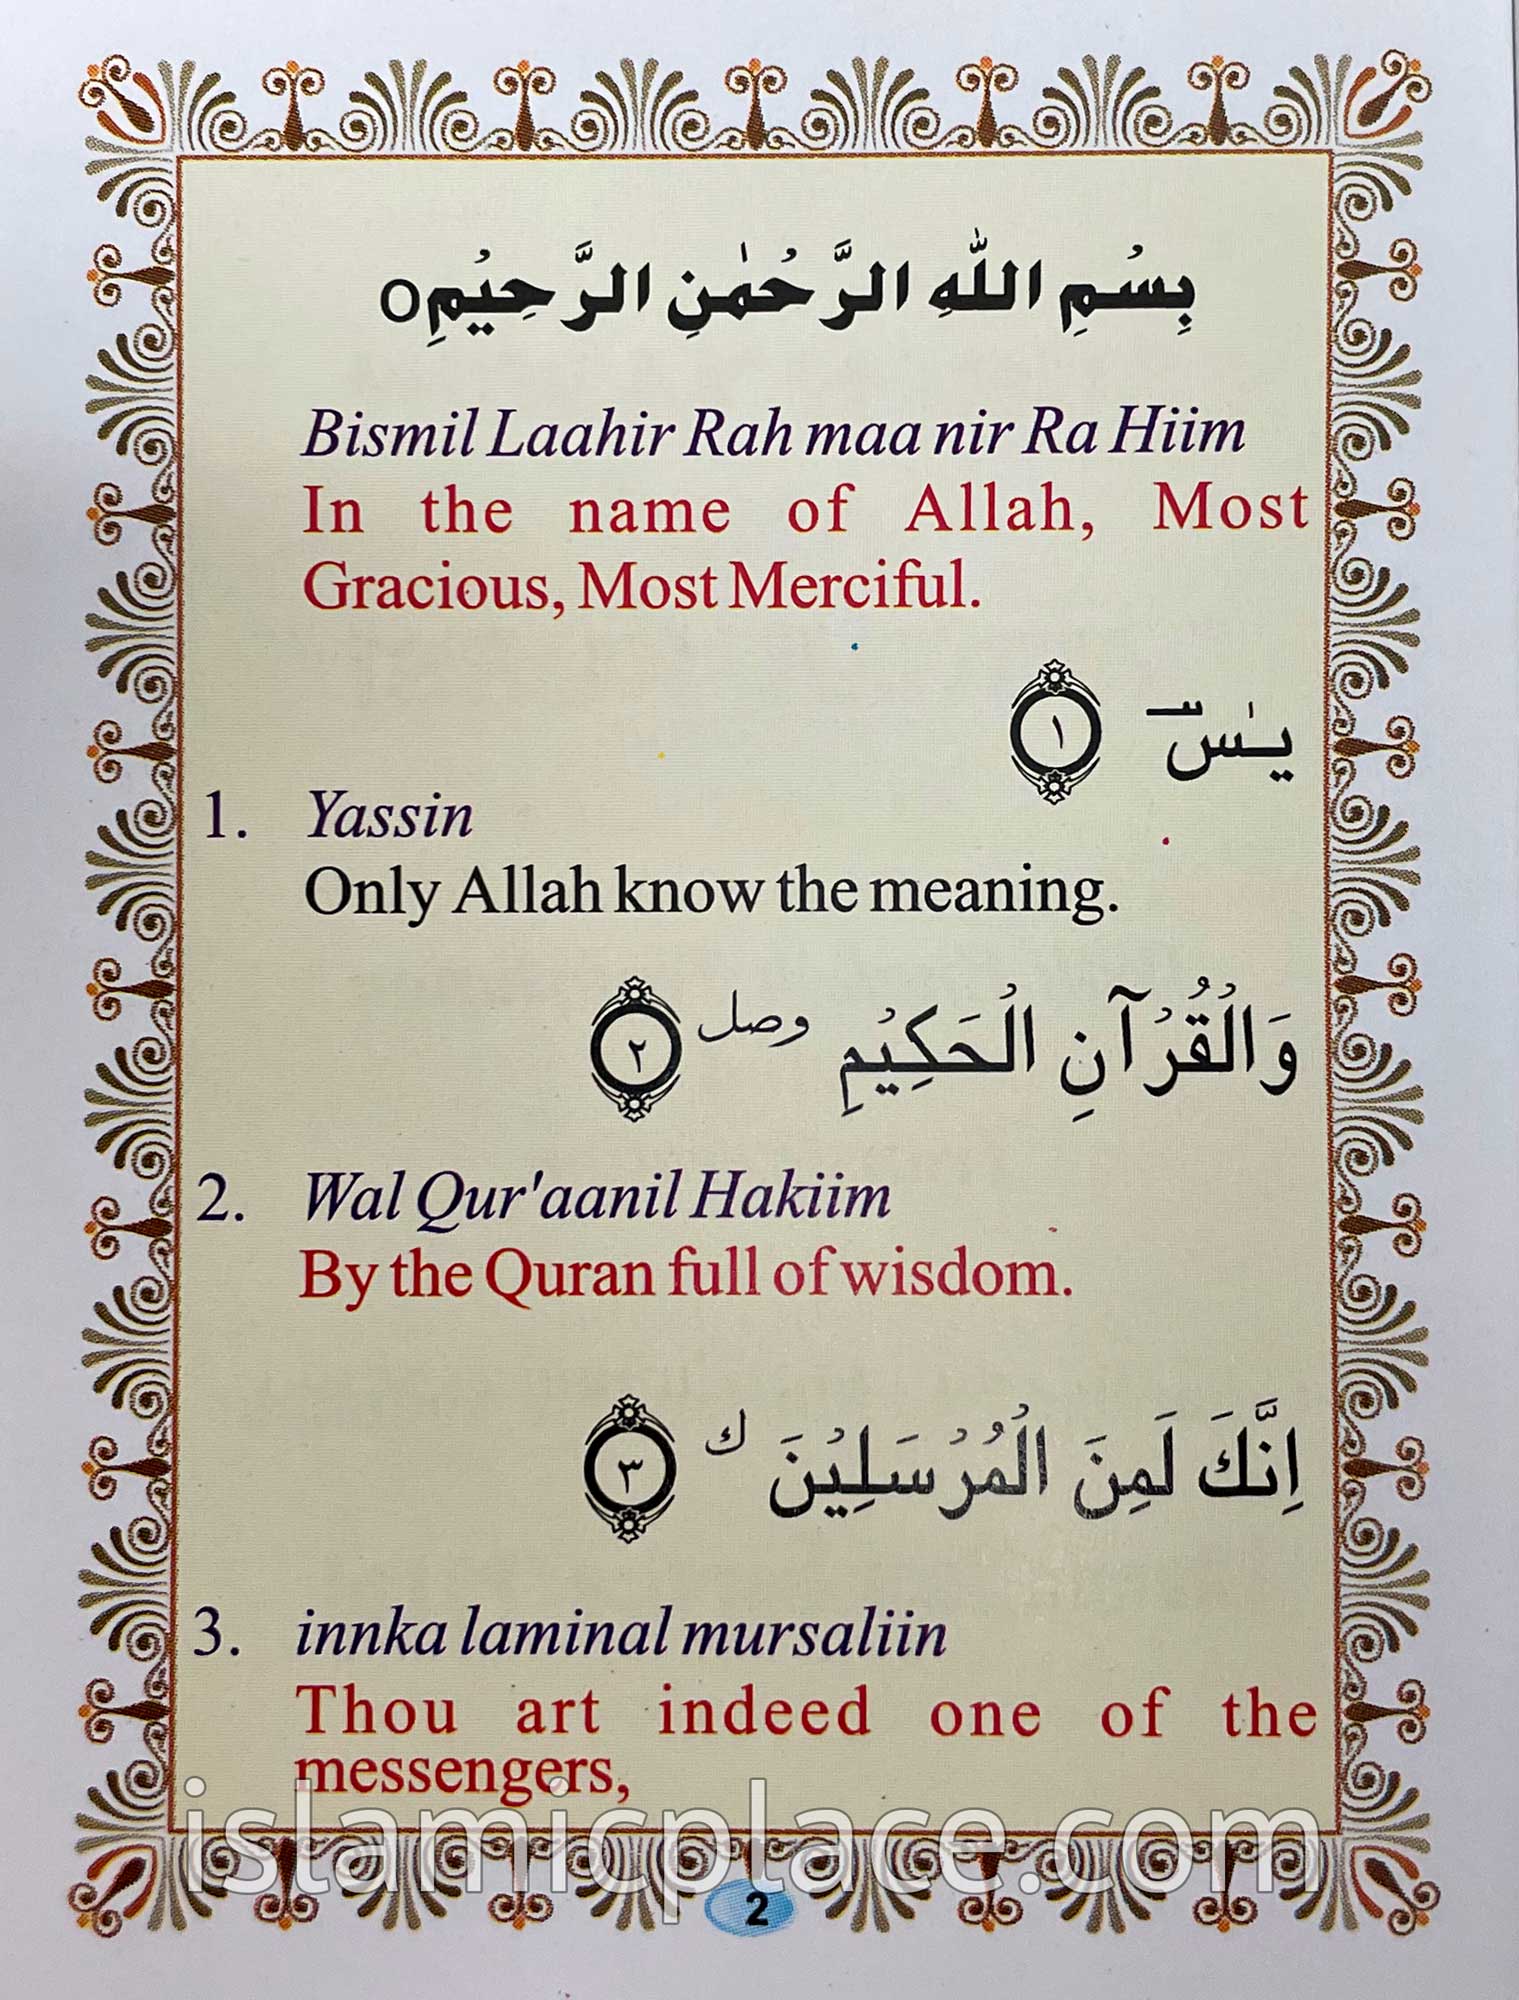 بِسْمِ اللّٰهِ الرَّحْمٰنِ الرَّحِيْمِ○
Bismil Laahir Rah maa nir Ra Hiim
In the name of Allah, Most
Gracious, Most Merciful.
يٰسٓ ١
1. Yassin
Only Allah know the meaning.
وَالْقُرْآنِ الْحَكِيْمِ وصل ٢
2. Wal Qur'aanil Hakiim
By the Quran full of wisdom.
اِنَّكَ لَمِنَ الْمُرْسَلِيْنَ ك ٣
3. innka laminal mursaliin
Thou art indeed one of the
messengers,
islamicplace.com
2